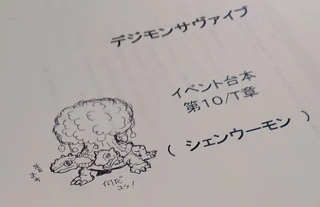 デジモンサヴァイブ
イベント台本
第10/T章
( シェンウーモン )